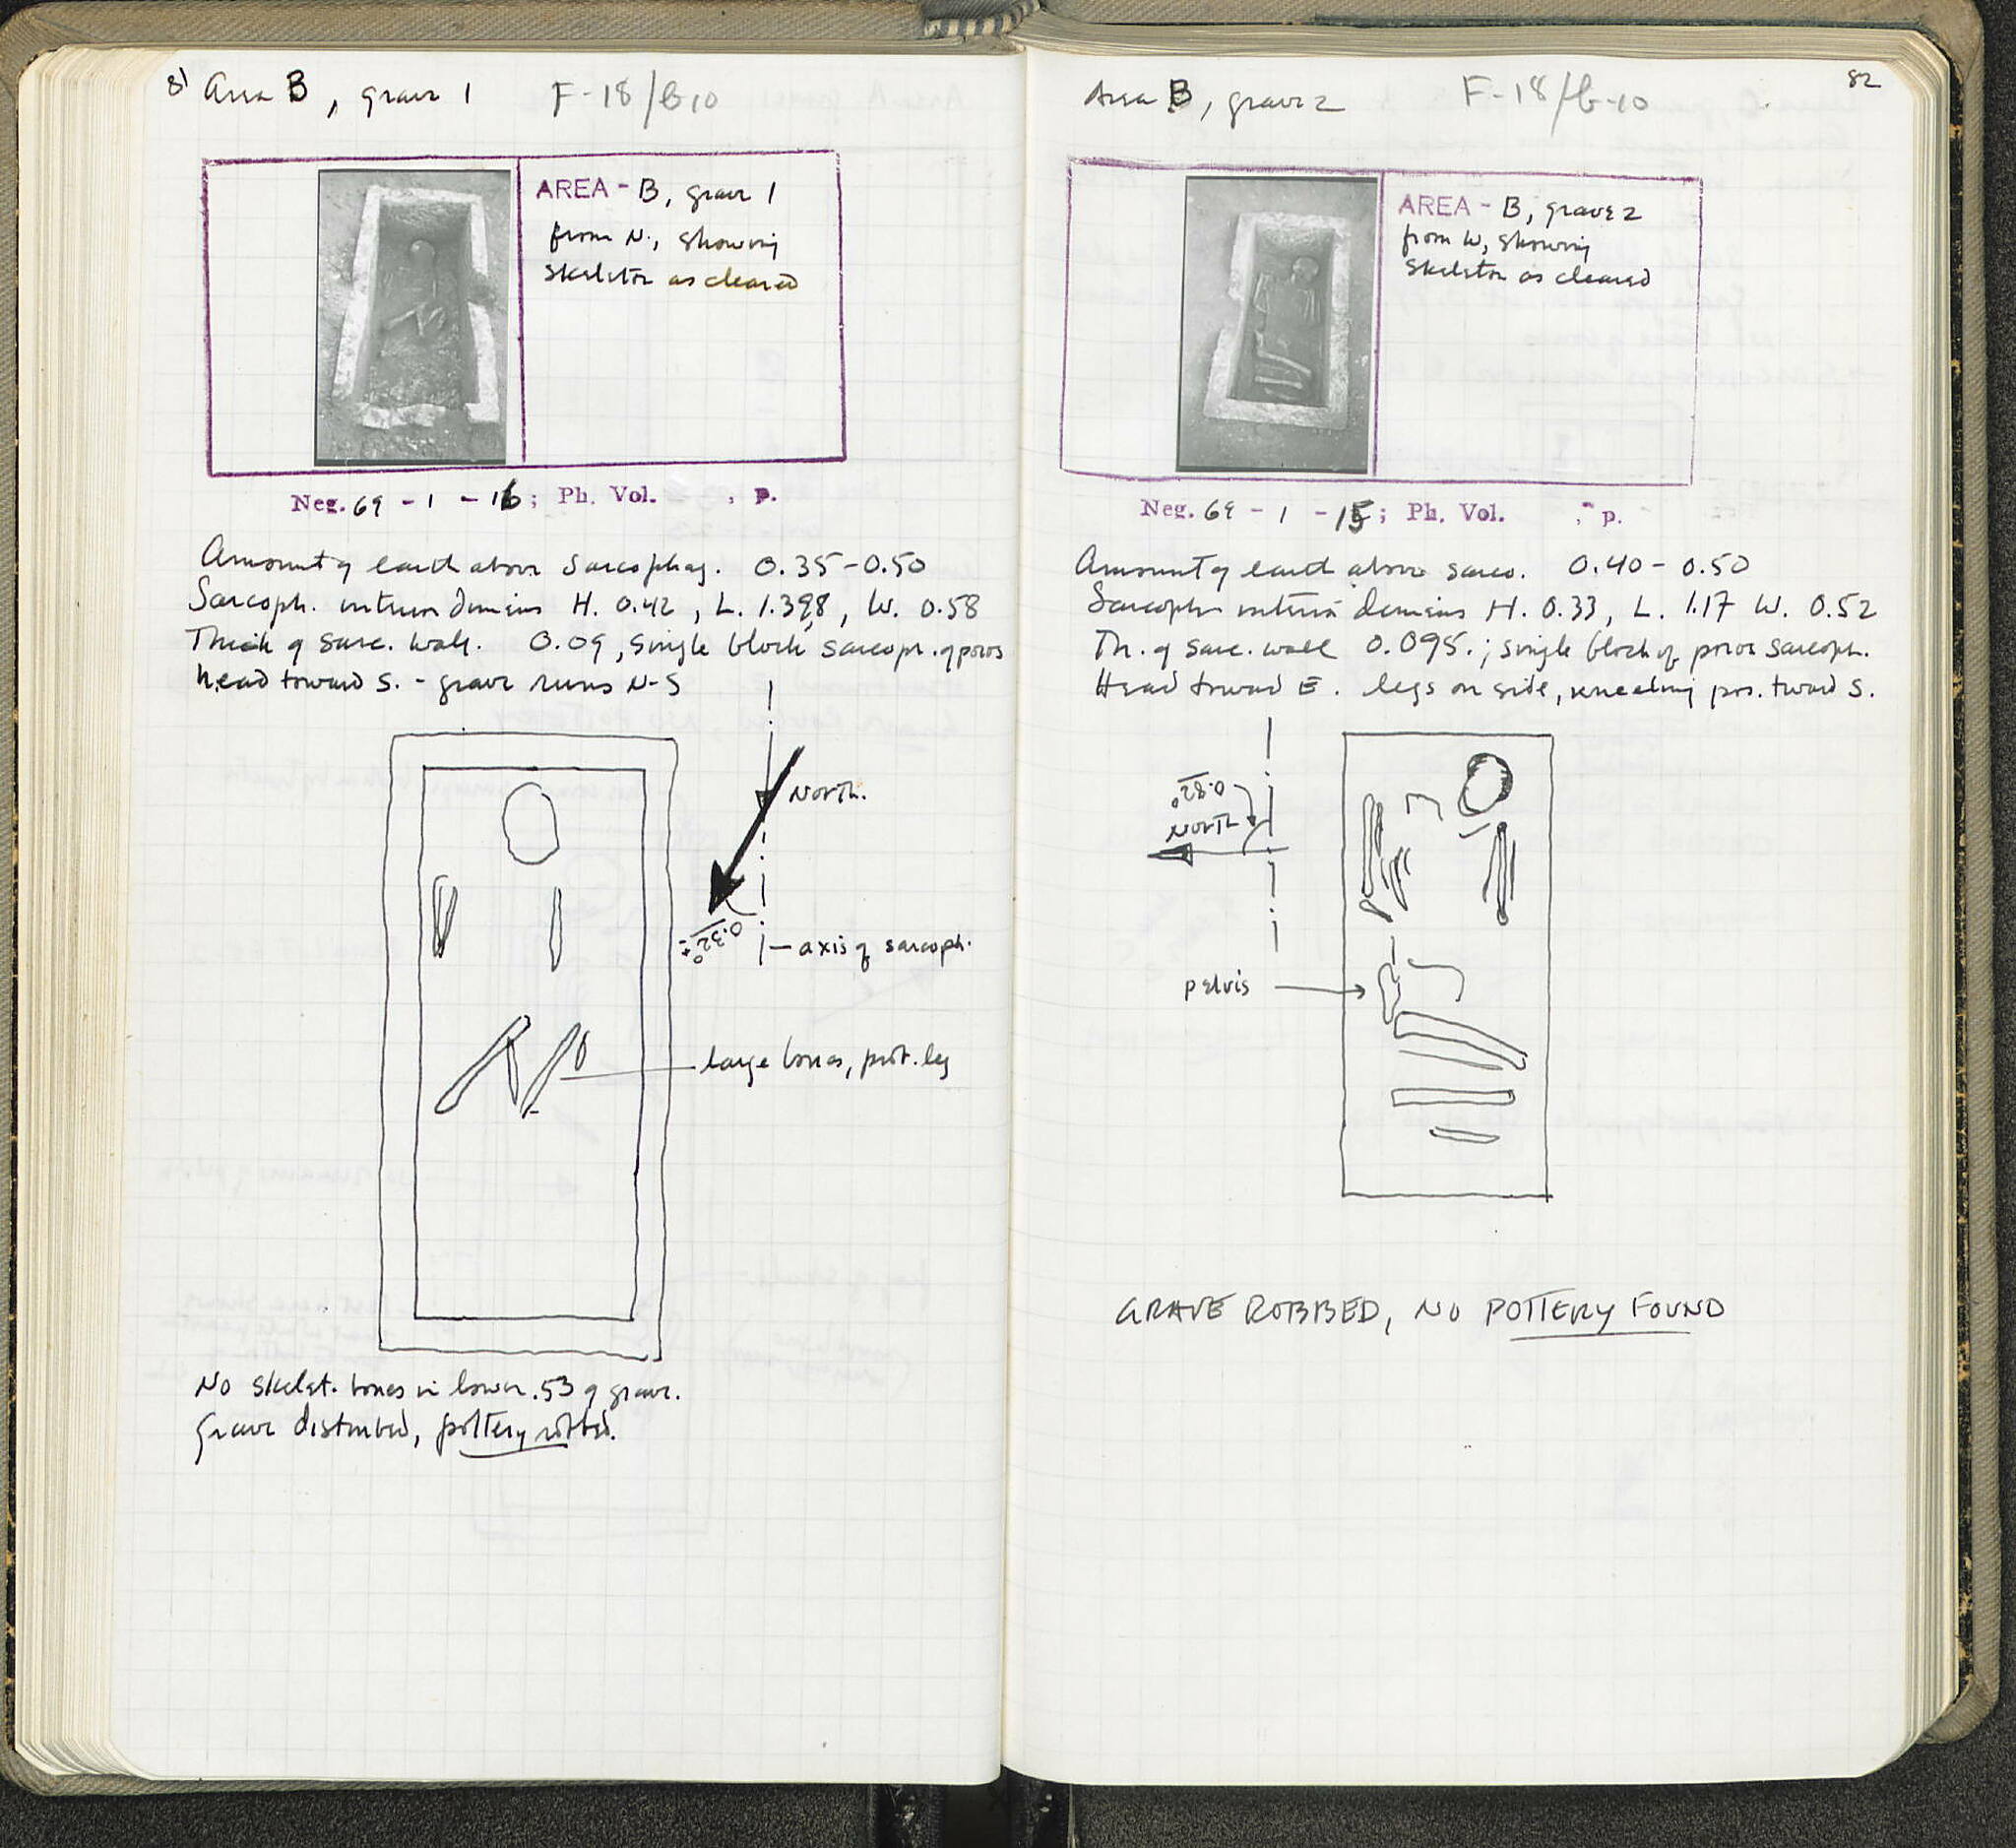 81 Area B, grave 1 F-18/b10
AREA - B, grave 1
from N., showing
skeleton as cleared
Neg. 69 - 1 - 16; Ph. Vol. , p.
Amount of earth above Sarcophag. 0.35-0.50
Sarcoph. interior dimens H. 0.42, L. 1.398, W. 0.58
Thick of sarc. wall. 0.09, single block sarcoph. of poros
head toward S. - grave runs N-S
North.
0.32°±
axis of sarcoph.
large bones, prob. leg
No skelet. bones in lower .53 of grave.
Grave disturbed, pottery robbed.
82
Area B, grave 2 F-18/b-10
AREA - B, grave 2
from W, showing
skeleton as cleared
Neg. 69 - 1 - 15; Ph. Vol. , p.
Amount of earth above sarco. 0.40 - 0.50
Sarcoph interior dimens H. 0.33, L. 1.17 W. 0.52
Th. of sarc. wall 0.095.; single block of poros sarcoph.
Head toward E. legs on side, kneeling pos. tward S.
0.82°
North
pelvis
GRAVE ROBBED, NO POTTERY FOUND